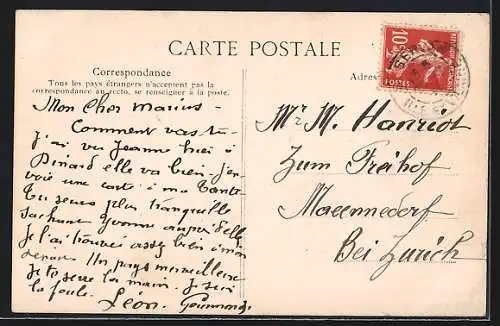 CARTE POSTALE
Correspondance
Tous les pays étrangers n'acceptent pas la
correspondance au recto, se renseigner à la poste.
Adres
10c
POSTES
Mon cher Marius -
Comment vas tu-
j'ai vu Jeanne hier à
Dinard elle va bien - j'en
voie une carte à ma Tante
Tu seras plus tranquille
sachant Yvonne auprès d'elle
je l'ai trouvée assez bien à mon
Un pays merveilleux
je te serre la main. Je suis
la foule. Léon.
Mr M. Hanriot
Zum Freihof
Maennedorf
Bei Zurich